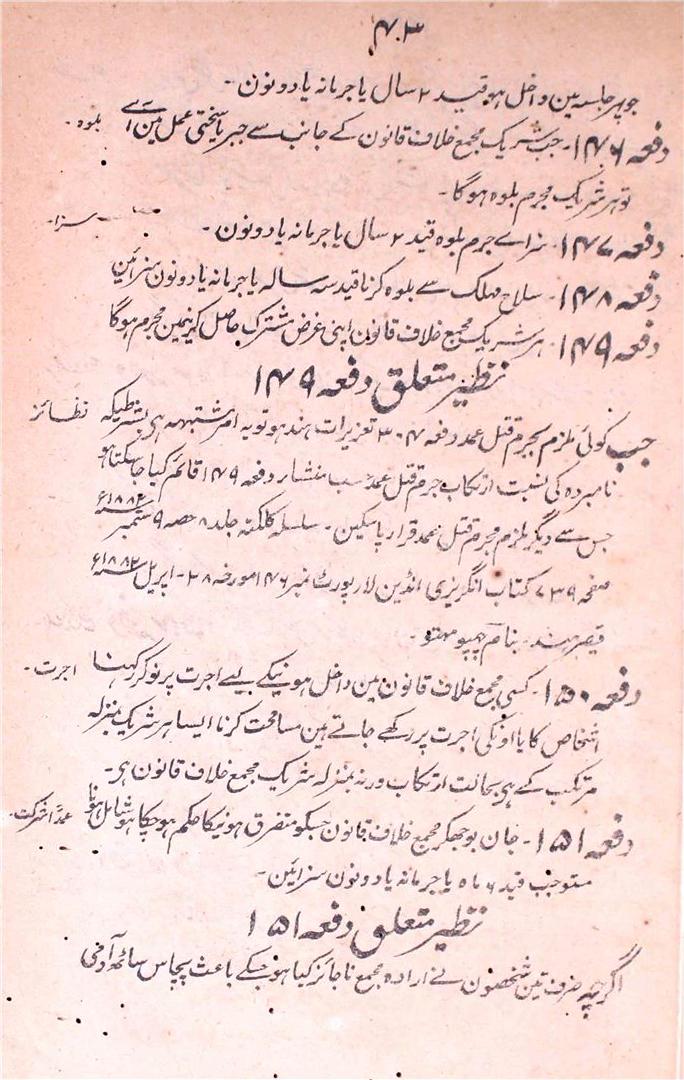 ۴۰۳
جو پھر جلسہ مین داخل ہو قید ۲ سال یا جرمانہ یا دونون۔
دفعہ ۱۴۶۔ جب شریک مجمع خلاف قانون کے جانب سے جبر یا سختی عمل مین آے بلوہ۔
تو ہر شریک مجرم بلوہ ہوگا۔
دفعہ ۱۴۷۔ سزاے جرم بلوہ قید ۲ سال یا جرمانہ یا دونون۔ سزا۔
دفعہ ۱۴۸۔ سلاح مہلک سے بلوہ کرنا قید سہ سالہ یا جرمانہ یا دونون سزائین
دفعہ ۱۴۹۔ ہر شریک مجمع خلاف قانون اپنی غرض مشترک حاصل کرنیمین مجرم ہوگا
نظیر متعلق دفعہ ۱۴۹
جب کوئی ملزم بجرم قتل عمد دفعہ ۳۰۷ تعزیرات ہند ہو تو یہ امر مشتبہہ ہی بشرطیکہ نظائر
نامبردہ کی نسبت ارتکاب جرم قتل عمد حسب منشار دفعہ ۱۴۹ قائم کیا جا سکتا ہو
جس سے دیگر ملزم مجرم قتل عمد قرار پا سکین۔ سلسلہ کلکتہ جلد ۸ حصہ ۹ ستمبر سنہ ۱۸۸۲ء
صفحہ ۷۳۹ کتاب انگریزی انڈین لا رپورٹ نمبر ۱۴۶ مورخہ ۲۸۔ اپریل سنہ ۱۸۸۲ء
قیصر ہند۔ بنام مہتو۔
دفعہ ۱۵۰۔ کسی مجمع خلاف قانون مین داخل ہونیکے لیے اجرت پر نوکر رکہنا اجرت۔
اشخاص کا یا اونکی اجرت پر رکھے جاتے مین مسامحت کرنا ایسا ہر شریک بمنزلہ
مرتکب کے ہی بحالت ارتکاب ورنہ بمنزلہ شریک مجمع خلاف قانون ہی۔
دفعہ ۱۵۱۔ جان بوجھکر مجمع خلاف قانون جسکو متفرق ہونیکا حکم ہو چکا ہو شامل ہونا عمداً شرکت۔
مستوجب قید ۶ ماہ یا جرمانہ یا دونون سزائین۔
نظیر متعلق دفعہ ۱۵۱
اگرچہ صرف تین شخصون نے ارادہ مجمع ناجائز کیا ہو جسکے باعث پچاس ساٹھ آدمی